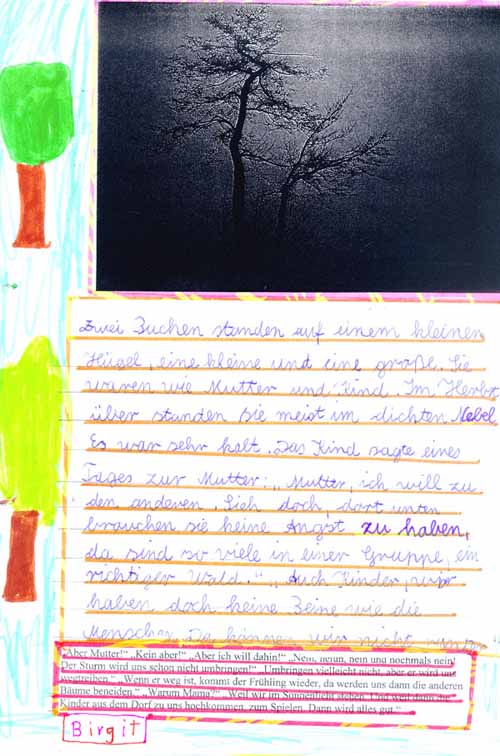 Zwei Buchen standen auf einem kleinen
Hügel, eine kleine und eine große. Sie
waren wie Mutter und Kind. Im Herbst
über standen sie meist im dichten Nebel.
Es war sehr kalt. Das Kind sagte eines
Tages zur Mutter: „Mutter, ich will zu
den anderen. Sieh doch, dort unten
brauchen sie keine Angst zu haben,
da sind so viele in einer Gruppe, ein
richtiger Wald." „Ach Kinder, wir
haben doch keine Beine wie die
Menschen. Da können wir nicht
"Aber Mutter!" „Kein aber!" „Aber ich will dahin!" „Nein, neuun, nein und nochmals nein!
Der Sturm wird uns schon nicht umbringen!" „Umbringen vielleicht nicht, aber er wird uns
wegtreiben." „Wenn er weg ist, kommt der Frühling wieder, da werden uns dann die anderen
Bäume beneiden." „Warum Mama?" „Weil wir im Sonnenlicht stehen. Und weil dann die
Kinder aus dem Dorf zu uns hochkommen, zum Spielen. Dann wird alles gut."
Birgit